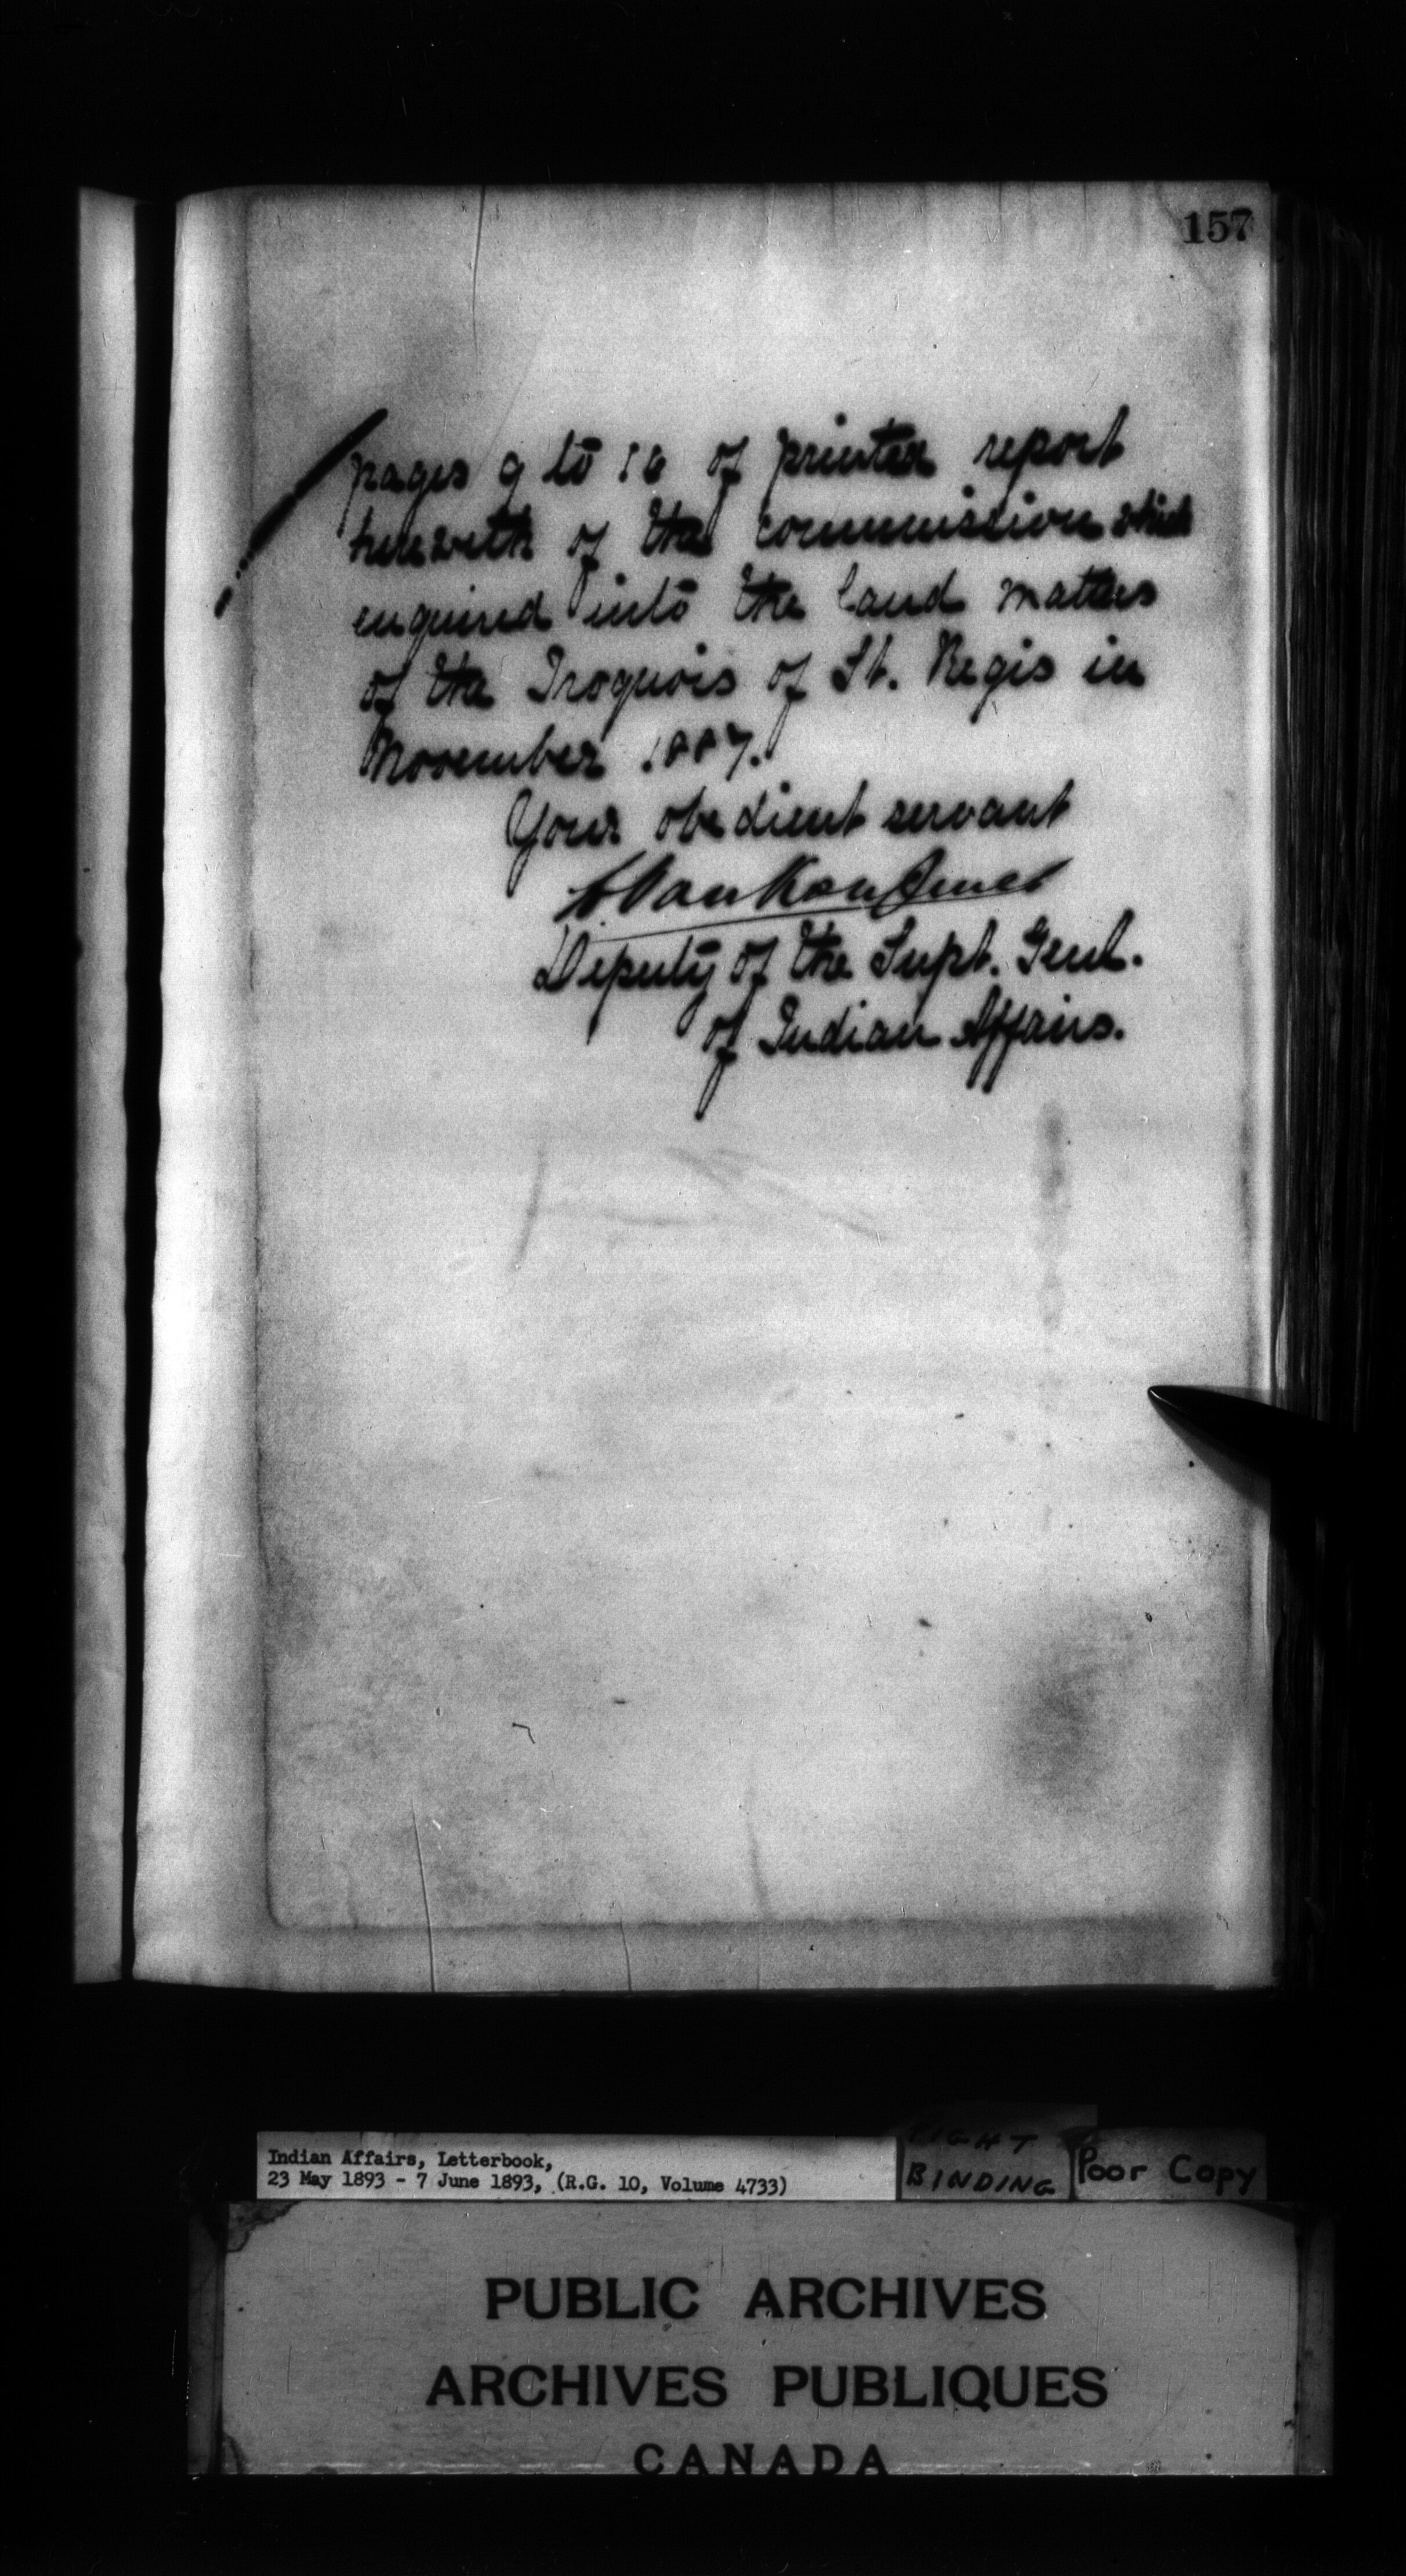 157
pages 9 to 16 of printed report
herewith of the commission which
enquired into the land matters
of the Iroquois of St. Regis in
November 1887.
Your obedient servant
L Vankoughnet
Deputy of the Supt. Genl.
of Indian Affairs.
Indian Affairs, Letterbook,
23 May 1893 - 7 June 1893, (R.G. 10, Volume 4733)
BINDING
Poor Copy
PUBLIC ARCHIVES
ARCHIVES PUBLIQUES
CANADA